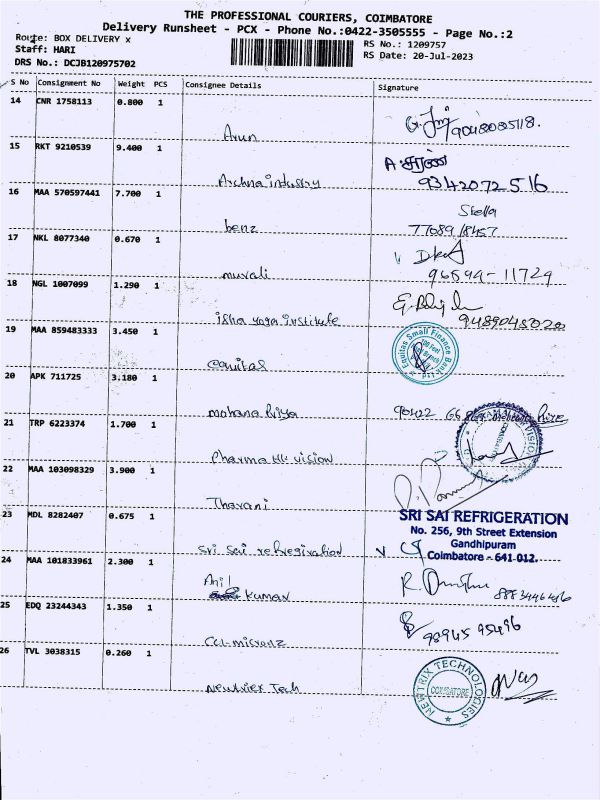 THE PROFESSIONAL COURIERS, COIMBATORE
Delivery Runsheet - PCX - Phone No.:0422-3505555 - Page No.:2
Route: BOX DELIVERY x
RS No.: 1209757
Staff: HARI
RS Date: 20-Jul-2023
DRS No.: DCJB120975702
S No Consignment No Weight PCS Consignee Details Signature
14 CNR 1758113 0.800 1
Arun
9048085118.
15 RKT 9210539 9.400 1
Archna industry
9342072516
16 MAA 570597441 7.700 1
Stella
benz
17 NKL 8077340 0.670 1
murali
96594-11729
18 NGL 1007099 1.290 1
isha yoga institute
9489045020
19 MAA 859483333 3.450 1
Equitas Small Finance Bank Ltd
equitas
20 APK 711725 3.180 1
mohana Priya
21 TRP 6223374 1.700 1
VISION
Pharma Hk vision
22 MAA 103098329 3.900 1
Tharani
23 MDL 8282407 0.675 1
SRI SAI REFRIGERATION
No. 256, 9th Street Extension
Gandhipuram
Coimbatore - 641 012.
Sri Sai refregiration
24 MAA 101833961 2.300 1
Anil
Kumar
25 EDQ 23244343 1.350 1
98945 95496
26 TVL 3038315 0.260 1
NEWTRIX TECHNOLOGIES
COIMBATORE
Newtrix Tech